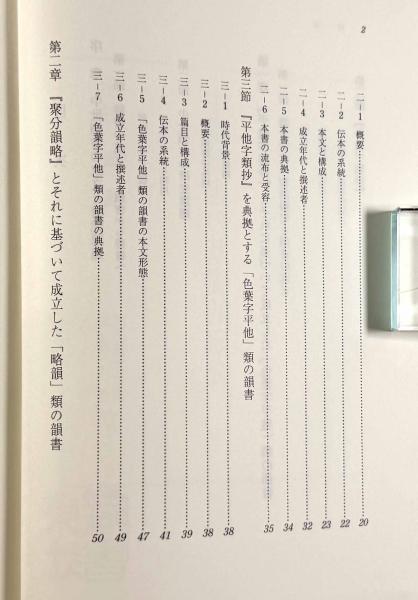 2
二-1 概要……20
二-2 伝本の系統……22
二-3 本文と構成……23
二-4 成立年代と撰述者……32
二-5 本書の典拠……34
二-6 本書の流布と受容……35
第三節 『平他字類抄』を典拠とする「色葉字平他」類の韻書
三-1 時代背景……38
三-2 概要……38
三-3 篇目と構成……39
三-4 伝本の系統……41
三-5 「色葉字平他」類の韻書の本文形態……47
三-6 成立年代と撰述者……49
三-7 「色葉字平他」類の韻書の典拠……50
第二章 『聚分韻略』とそれに基づいて成立した「略韻」類の韻書